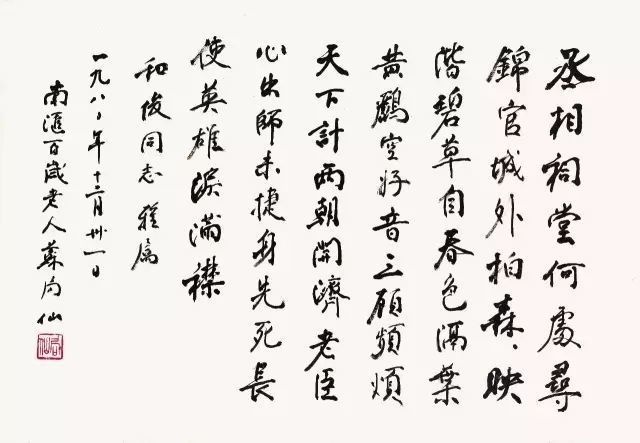 丞相祠堂何處尋
錦官城外柏森、映
階碧草自春色隔葉
黃鸝空好音三顧頻煩
天下計兩朝開濟老臣
心出師未捷身先死長
使英雄淚滿襟
和俊同志雅屬
一九八〇年十二月卅一日
南滙百歲老人蘇局仙